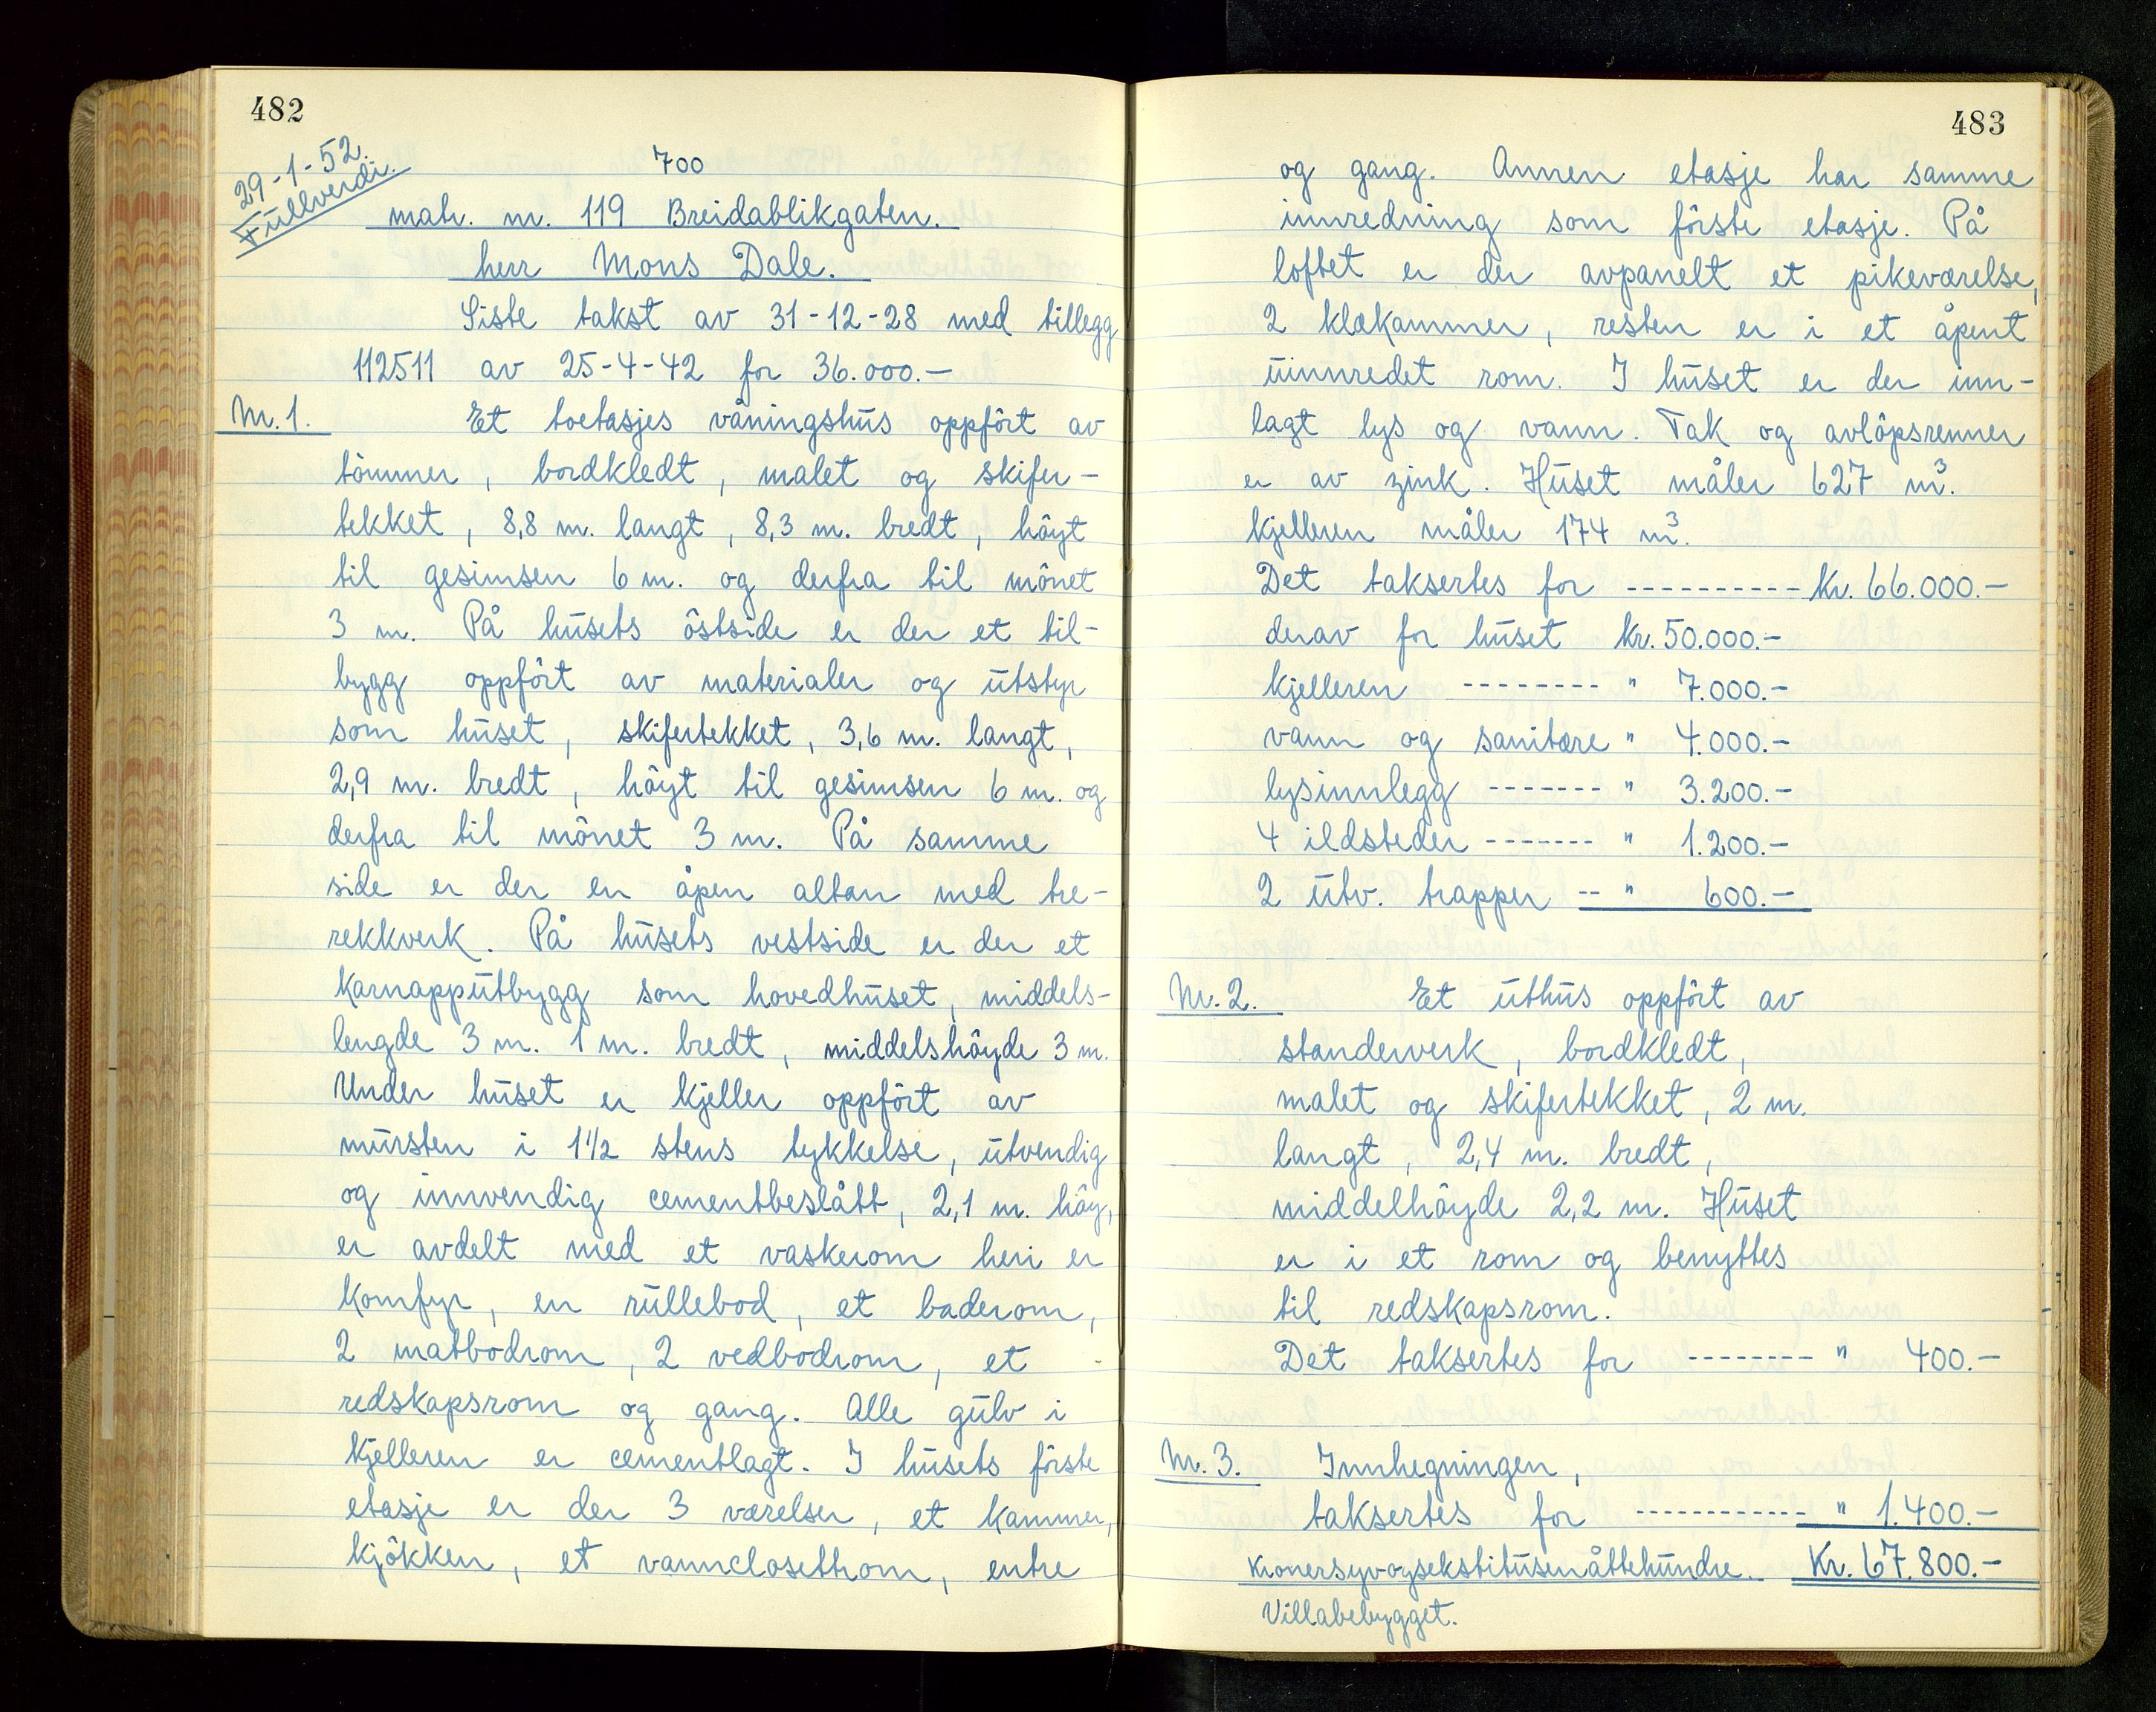 482
29-1-52.
Fullverdi.
700
matr. nr. 119 Breidablikgaten.
herr Mons Dale.
Siste takst av 31-12-28 med tillegg
112511 av 25-4-42 for 36.000.-
Nr. 1. Et toetasjes våningshus oppført av
tømmer, bordkledt, malet og skifer-
tekket, 8,8 m. langt, 8,3 m. bredt, høyt
til gesimsen 6 m. og derfra til mønet
3 m. På husets østside er der et til-
bygg oppført av materialer og utstyr
som huset, skifertekket, 3,6 m. langt,
2,9 m. bredt, høyt til gesimsen 6 m. og
derfra til mønet 3 m. På samme
side er der en åpen altan med tre-
rekkverk. På husets vestside er der et
karnapputbygg som hovedhuset, middels-
lengde 3 m. 1 m. bredt, middelshøyde 3 m.
Under huset er kjeller oppført av
mursten i 1 1/2 stens tykkelse, utvendig
og innvendig cementbeslått, 2,1 m. høy,
er avdelt med et vaskerom heri er
komfyr, en rullebod, et baderom,
2 matbodrom, 2 vedbodrom, et
redskapsrom og gang. Alle gulv i
kjelleren er cementlagt. I husets første
etasje er der 3 værelser, et kammer,
kjøkken, et vannclosettrom, entre
483
og gang. Annen etasje har samme
innredning som første etasje. På
loftet er der avpanelt et pikeværelse,
2 klækammer, resten er i et åpent
uinnredet rom. I huset er der inn-
lagt lys og vann. Tak og avløpsrenner
er av zink. Huset måler 627 m³.
kjelleren måler 174 m³.
Det taksertes for ---------- Kr. 66.000.-
derav for huset Kr. 50.000.-
kjelleren -------- " 7.000.-
vann og sanitære " 4.000.-
lysinnlegg ------- " 3.200.-
4 ildsteder ------- " 1.200.-
2 utv. trapper -- " 600.-
Nr. 2. Et uthus oppført av
standerverk, bordkledt,
malet og skifertekket, 2 m.
langt, 2,4 m. bredt,
middelhøyde 2,2 m. Huset
er i et rom og benyttes
til redskapsrom.
Det taksertes for -------- " 400.-
Nr. 3. Innhegningen,
taksertes for ------------ " 1.400.-
Kronersyvogsekstitusenåttehundre. Kr. 67.800.-
Villabebygget.